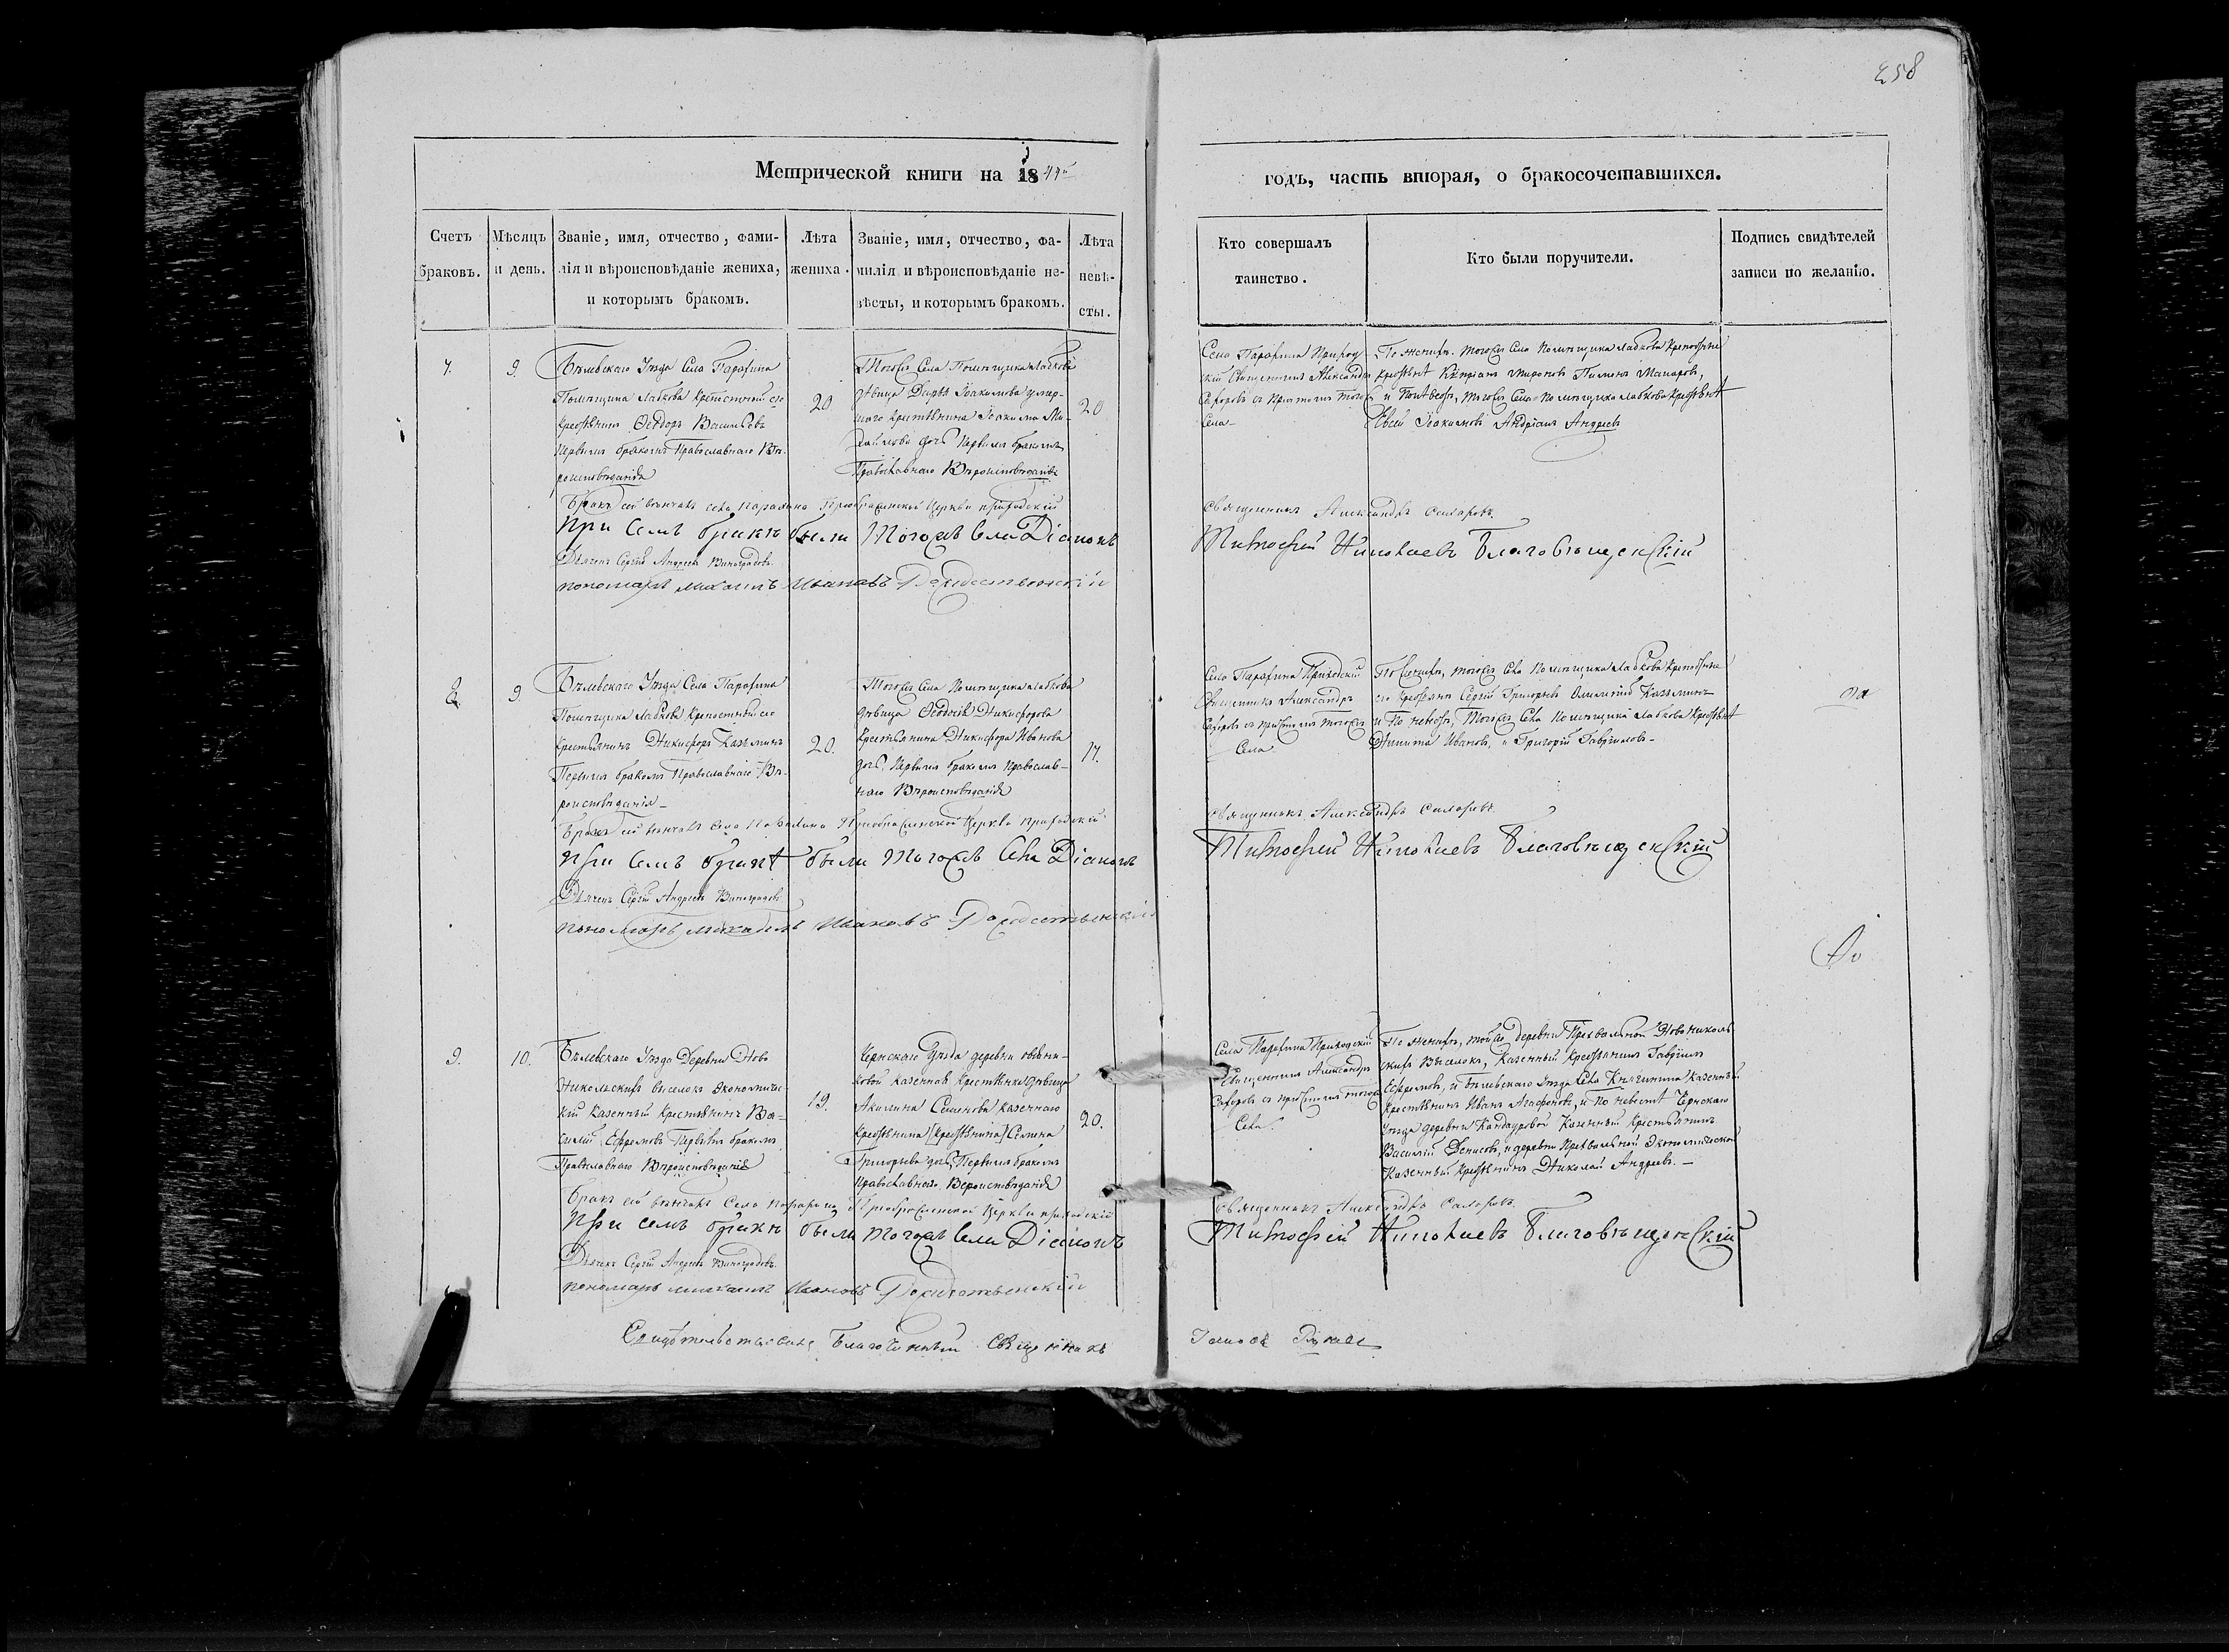 258
Метрической книги на 1844й
годъ, часть вторая, о бракосочетавшихся.
Счетъ браковъ.
Мѣсяцъ и день.
Званіе, имя, отчество, фами-
лія и вѣроисповѣданіе жениха,
и которымъ бракомъ.
Лѣта
жениха.
Званіе, имя, отчество, фа-
милія и вѣроисповѣданіе не-
вѣсты, и которымъ бракомъ.
Лѣта
невѣ-
сты.
Кто совершалъ
таинство.
Кто были поручители.
Подпись свидѣтелей
записи по желанію.
7.
9.
Бѣлевскаго Уѣзда Села Парахина
Помѣщика Лабкова крепостный его
крестьянинъ Ѳеодоръ Васильевъ
первымъ бракомъ Православнаго Вѣ-
роисповѣданія
20
Тогожъ Села Помѣщика Лабкова
дѣвица Дарья Іоакимова умер-
шаго крестьянина Іоакима Ми-
хайлова дочь первымъ бракомъ
Православнаго Вѣроисповѣданія
20
Села Парахина Приход-
скій Священникъ Александръ
Сахаровъ съ причтомъ тогожъ
Села
По женихѣ, тогожъ Села помѣщика Лабкова крепостные
крестьяне Кипріанъ Мироновъ Пименъ Макаровъ,
и По невѣсте, тогожъ Села помѣщика Лабкова крестьяне
Евсей Іоакимовъ Андріанъ Андреевъ
Бракъ сей вѣнчалъ села Парахина Преображенской Церкви приходскій
священникъ Александръ Сахаровъ.
При семъ бракѣ были тогожъ села Діаконъ
Тимофей Николаевъ Благовѣщенскій
Дьячекъ Сергій Андреевъ Виноградовъ
пономарь Михаилъ Ивановъ Рождественскій
8.
9.
Бѣлевскаго Уѣзда Села Парахина
Помѣщика Лабкова Крепостный его
Крестьянинъ Никифоръ Казьминъ
Первымъ бракомъ Православнаго Вѣ-
роисповѣданія
20.
Тогожъ Села Помѣщика Лабкова
дѣвица Ѳеодосія Никифорова
Крестьянина Никифора Иванова
дочь. Первымъ бракомъ Православ-
наго Вѣроисповѣданія
17.
Села Парахина Приходскій
Священникъ Александръ
Сахаровъ съ причтомъ тогожъ
Села
По женихѣ, тогожъ Села помѣщика Лабкова Крепостные
его крестьяне Сергій Григорьевъ Казьминъ
и По невѣсте, Тогожъ Села помѣщика Лабкова Крестьяне
Никита Ивановъ, и Григорій Гавріиловъ
Бракъ сей вѣнчалъ Села Парахина Преображенской Церкви приходскій
священникъ Александръ Сахаровъ.
При семъ бракѣ были тогожъ Села Діаконъ
Тимофей Николаевъ Благовѣщенскій
Дьячекъ Сергій Андреевъ Виноградовъ
пономарь Михаилъ Ивановъ Рождественскій
9.
10.
Бѣлевскаго Уѣзда Деревни Ново
Никольскихъ выселокъ экономичес-
кій Казенный Крестьянинъ Ва-
силій Ефремовъ Первымъ бракомъ
Православнаго Вѣроисповѣданія
19.
Чернскаго Уѣзда деревни
казенная Крестьянка дѣвица
Акилина Семенова казеннаго
Крестьянина [Крестьянина] Семена
Григорьева дочь, Первымъ бракомъ
Православнаго Вероисповѣданія
20.
Села Парахина Приходскій
Священникъ Александръ
Сахаровъ съ причтомъ тогожъ
Села.
По женихѣ, тойжъ деревни Прихвальной Новоникольс
кихъ Выселокъ, Казенный Крестьянинъ Гавріилъ
Ефремовъ, и Бѣлевскаго Уѣзда Села Княгинина Казенный
Крестьянинъ Иванъ Агафоновъ, и По невесте Чернскаго
Уѣзда деревни Кондауровой Казенный Крестьянинъ
Василій Денисовъ, и деревни Прихвальной Экономической
Казенный Крестьянинъ Николай Андреевъ.
Бракъ сей вѣнчалъ Села Парахина Преображенской Церкви приходскій
священникъ Александръ Сахаровъ.
При семъ бракѣ были тогожъ Села Діаконъ
Тимофей Николаевъ Благовѣщенскій
Дьячекъ Сергій Андреевъ Виноградовъ.
пономарь Михаилъ Ивановъ Рождественскій
Свидѣтельствовалъ Благочинный Священникъ